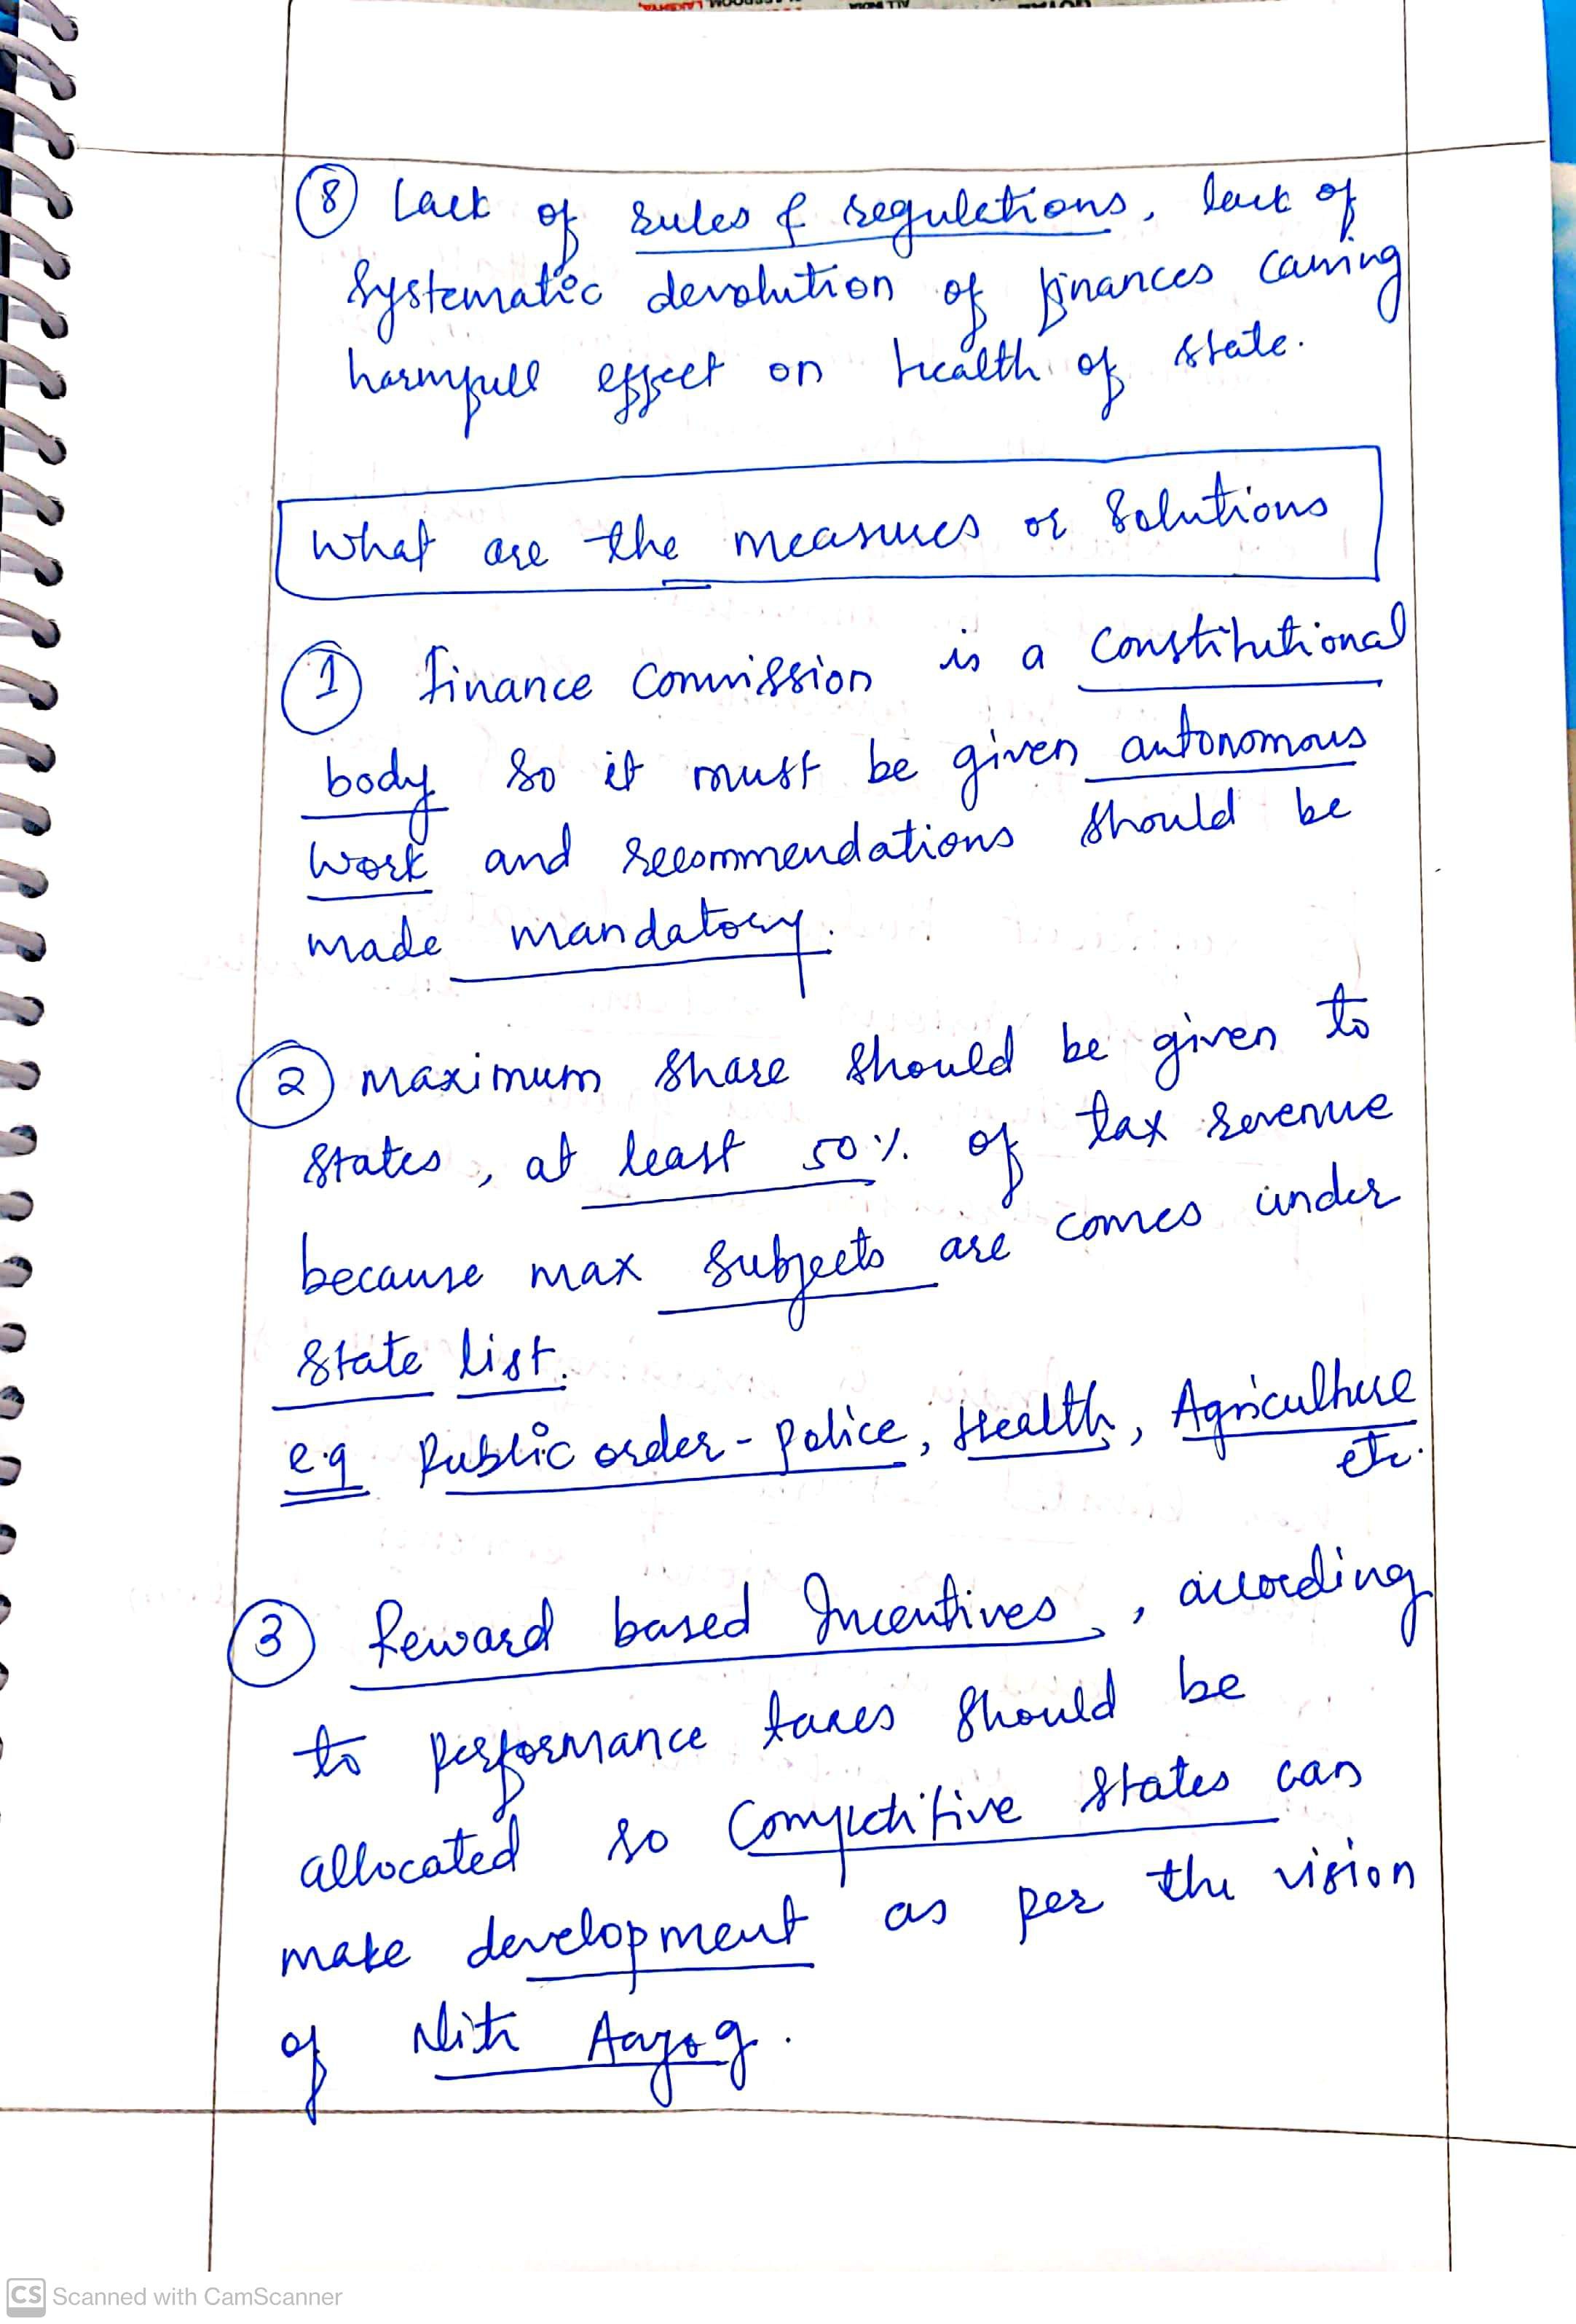 8 Lack of rules & regulations, lack of
systematic devolution of finances causing
harmfull effect on health of state.
What are the measures or solutions
1 Finance Commission is a constitutional
body so it must be given autonomous
work and recommendations should be
made mandatory.
2 Maximum share should be given to
states, at least 50% of tax revenue
because max subjects are comes under
state list.
e.g Public order - police, Health, Agriculture
etc.
3 Reward based Incentives, according
to performance taxes should be
allocated so Competitive states can
make development as per the vision
of Niti Aayog.
CS Scanned with CamScanner